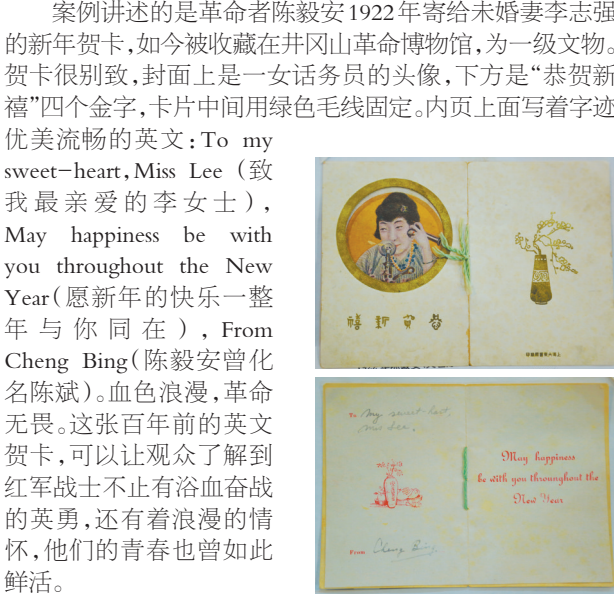 案例讲述的是革命者陈毅安1922年寄给未婚妻李志强
的新年贺卡,如今被收藏在井冈山革命博物馆,为一级文物。
贺卡很别致,封面上是一女话务员的头像,下方是“恭贺新
禧”四个金字,卡片中间用绿色毛线固定。内页上面写着字迹
优美流畅的英文:To my
sweet-heart,Miss Lee(致
我最亲爱的李女士),
May happiness be with
you throughout the New
Year(愿新年的快乐一整
年与你同在),From
Cheng Bing(陈毅安曾化
名陈斌)。血色浪漫,革命
无畏。这张百年前的英文
贺卡,可以让观众了解到
红军战士不止有浴血奋战
的英勇,还有着浪漫的情
怀,他们的青春也曾如此
鲜活。
禧新賀恭
To My sweet-heart,
Miss Lee.
From Cheng Bing.
May happiness
be with you throunghout the
New Year